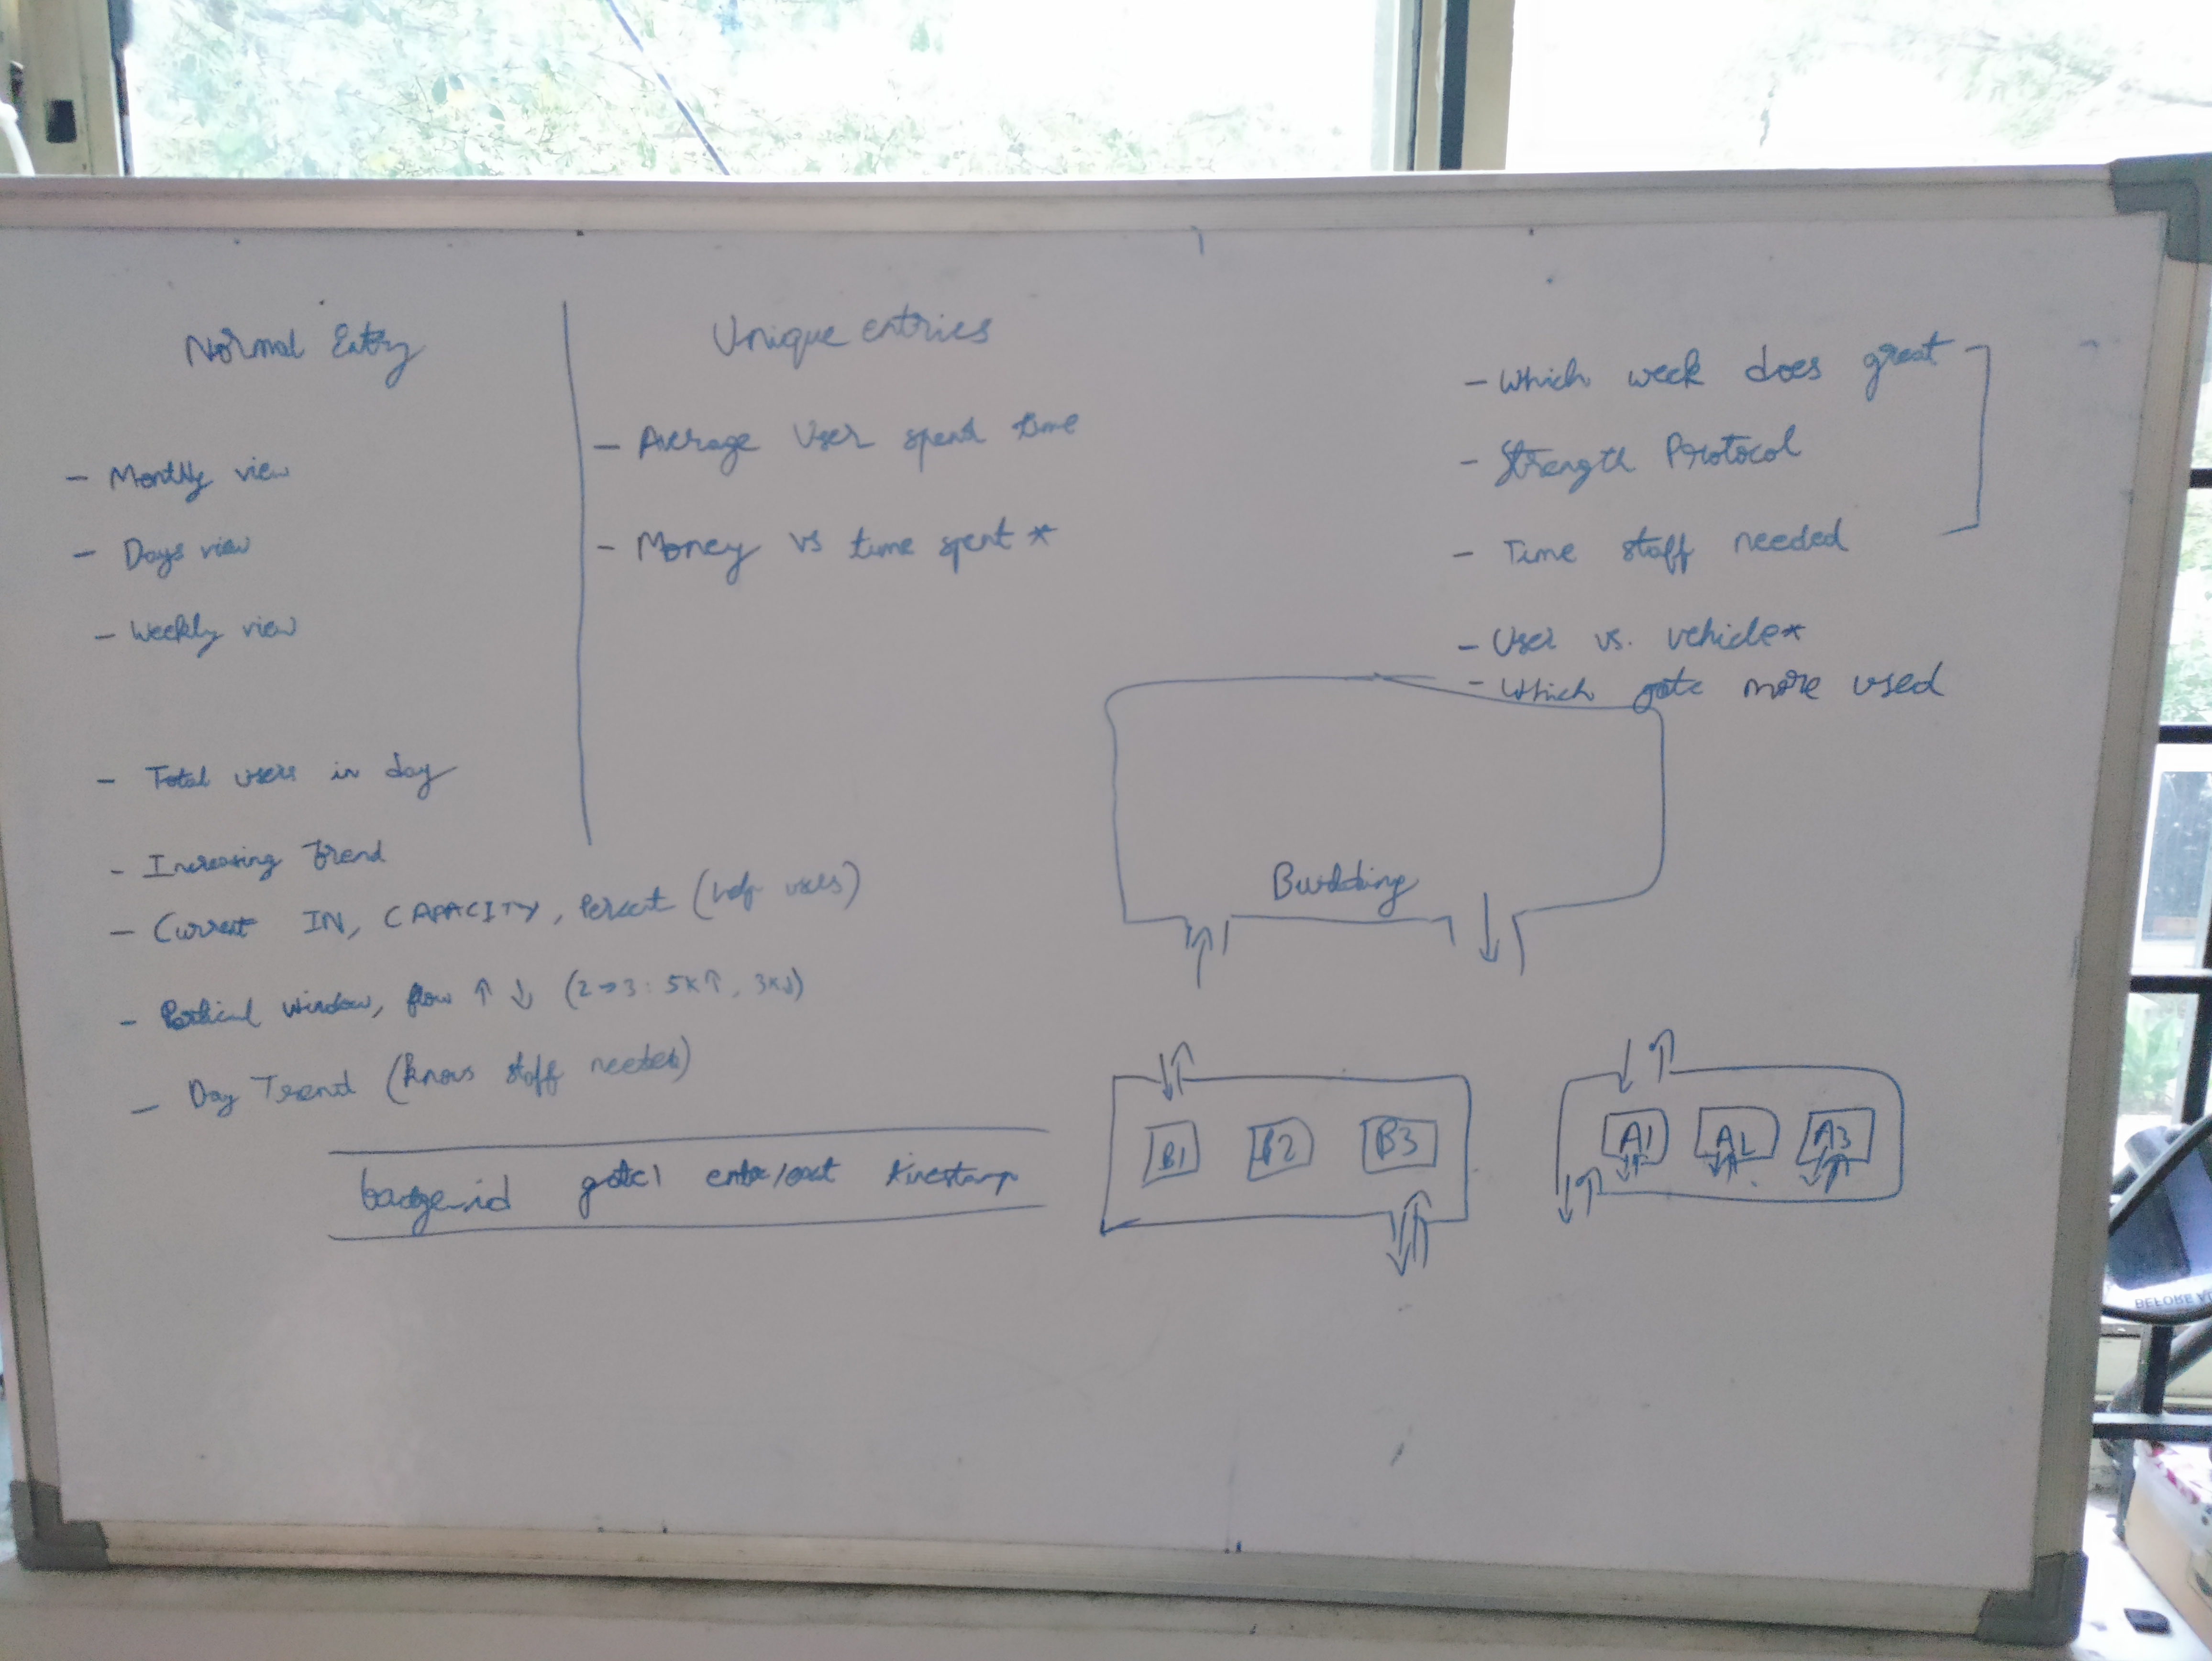 Normal Entry
- Monthly view
- Days view
- Weekly view
- Total users in day
- Increasing Trend
- Current IN, CAPACITY, Percent (help users)
- window, flow ↑ ↓ (2→3: 5K↑, 3K↓)
- Day Trend (knows staff needed)
badge_id gate1 enter/exit timestamp
Unique entries
- Average User spend time
- Money vs time spent *
- Which week does great
- Strength Protocol
- Time staff needed
- User vs. vehicle*
- Which gate more used
Building
B1 B2 B3
A1 A2 A3
BEFORE